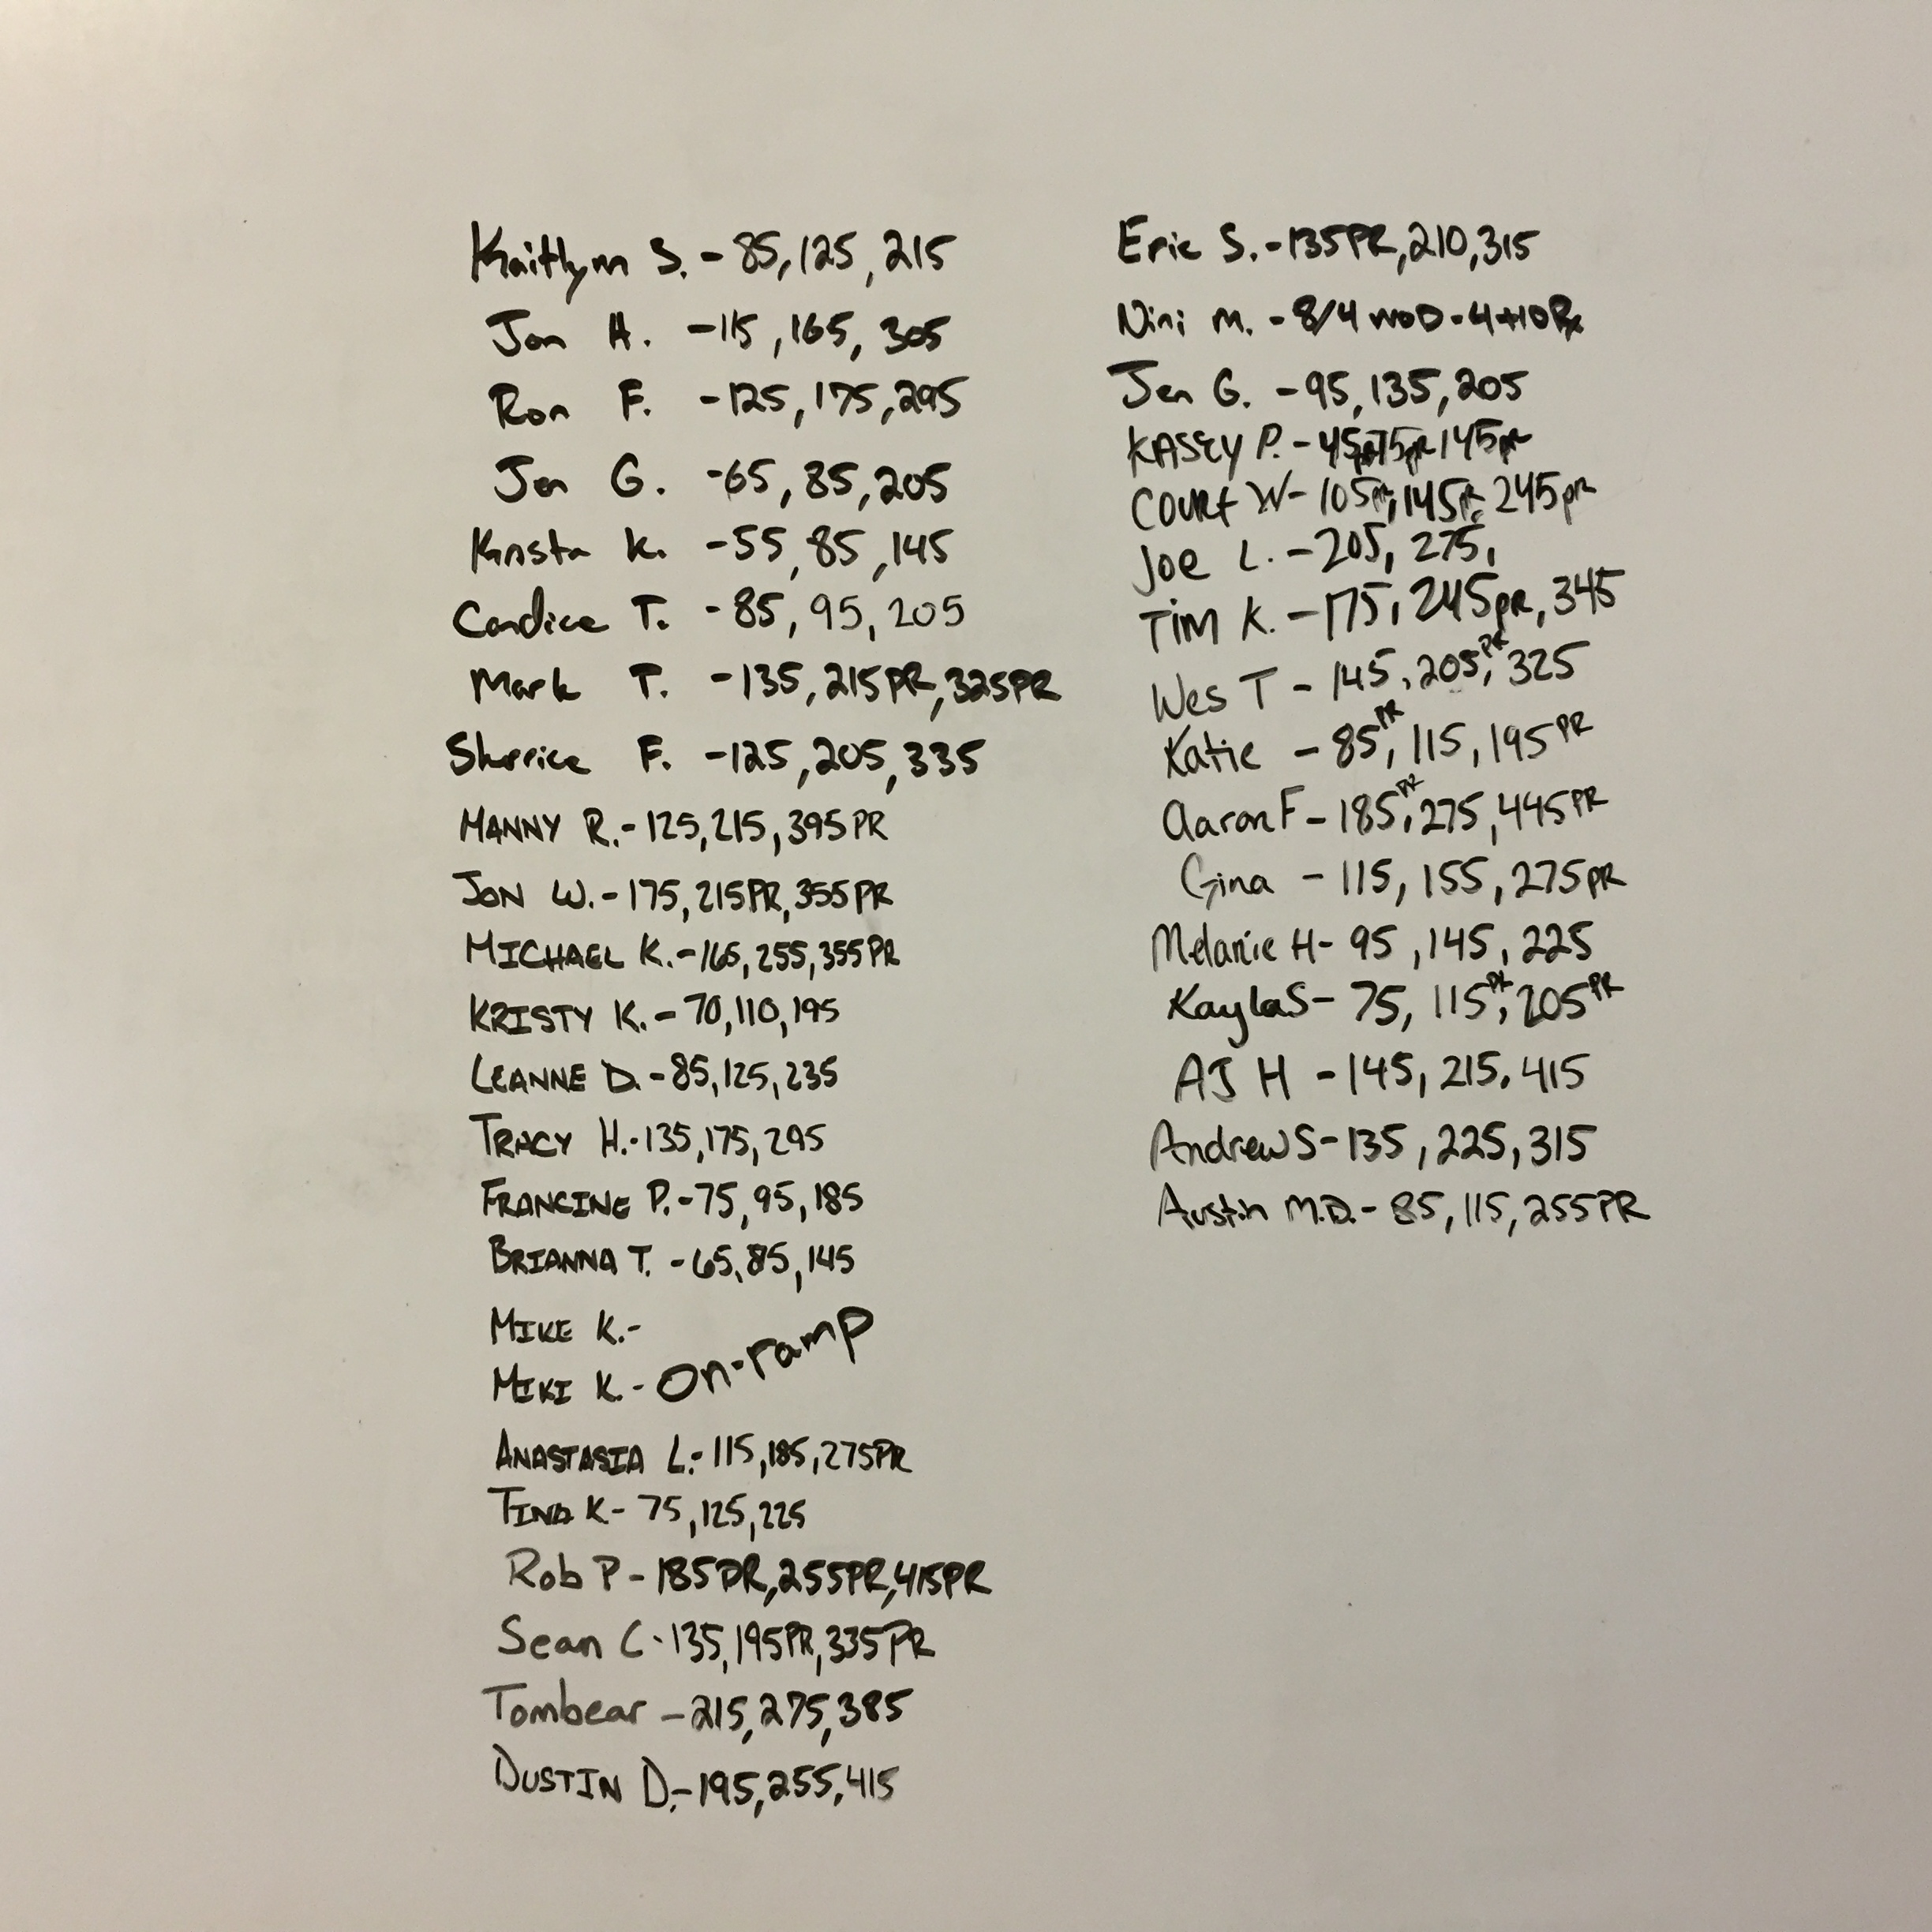 Kaitlynn S. - 85, 125, 215
Jon H. - 115, 165, 305
Ron F. - 125, 175, 295
Jen G. - 65, 85, 205
Krista K. - 55, 85, 145
Candice T. - 85, 95, 205
Mark T. - 135, 215PR, 325PR
Sherrice F. - 125, 205, 335
MANNY R. - 125, 215, 395PR
JON W. - 175, 215PR, 355PR
MICHAEL K. - 165, 255, 355PR
KRISTY K. - 70, 110, 195
LEANNE D. - 85, 125, 235
TRACY H. - 135, 175, 295
FRANCINE P. - 75, 95, 185
BRIANNA T. - 65, 85, 145
MIKE K. -
MIKI K. - On-ramp
ANASTASIA L. - 115, 185, 275PR
TINA K - 75, 125, 225
Rob P - 185PR, 255PR, 415PR
Sean C - 135, 195PR, 335PR
Tombear - 215, 275, 385
DUSTIN D. - 195, 255, 415
Eric S. - 135PR, 210, 315
Nini M. - 8/4 WOD - 4+10 Rx
Jen G. - 95, 135, 205
KASEY P. - 45pr, 75pr, 145pr
Court W - 105pr, 145pr, 245pr
Joe L. - 205, 275,
Tim K. - 175, 245pr, 345
Wes T - 145, 205PR, 325
Katie - 85PR, 115, 195PR
Aaron F - 185PR, 275, 445PR
Gina - 115, 155, 275pR
Melanie H - 95, 145, 225
Kayla S - 75, 115PR, 205PR
AJ H - 145, 215, 415
Andrew S - 135, 225, 315
Austin M.D. - 85, 115, 255PR